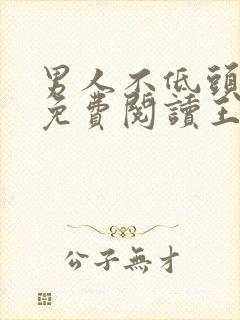 男人不低頭
免費閱讀王
公子無才